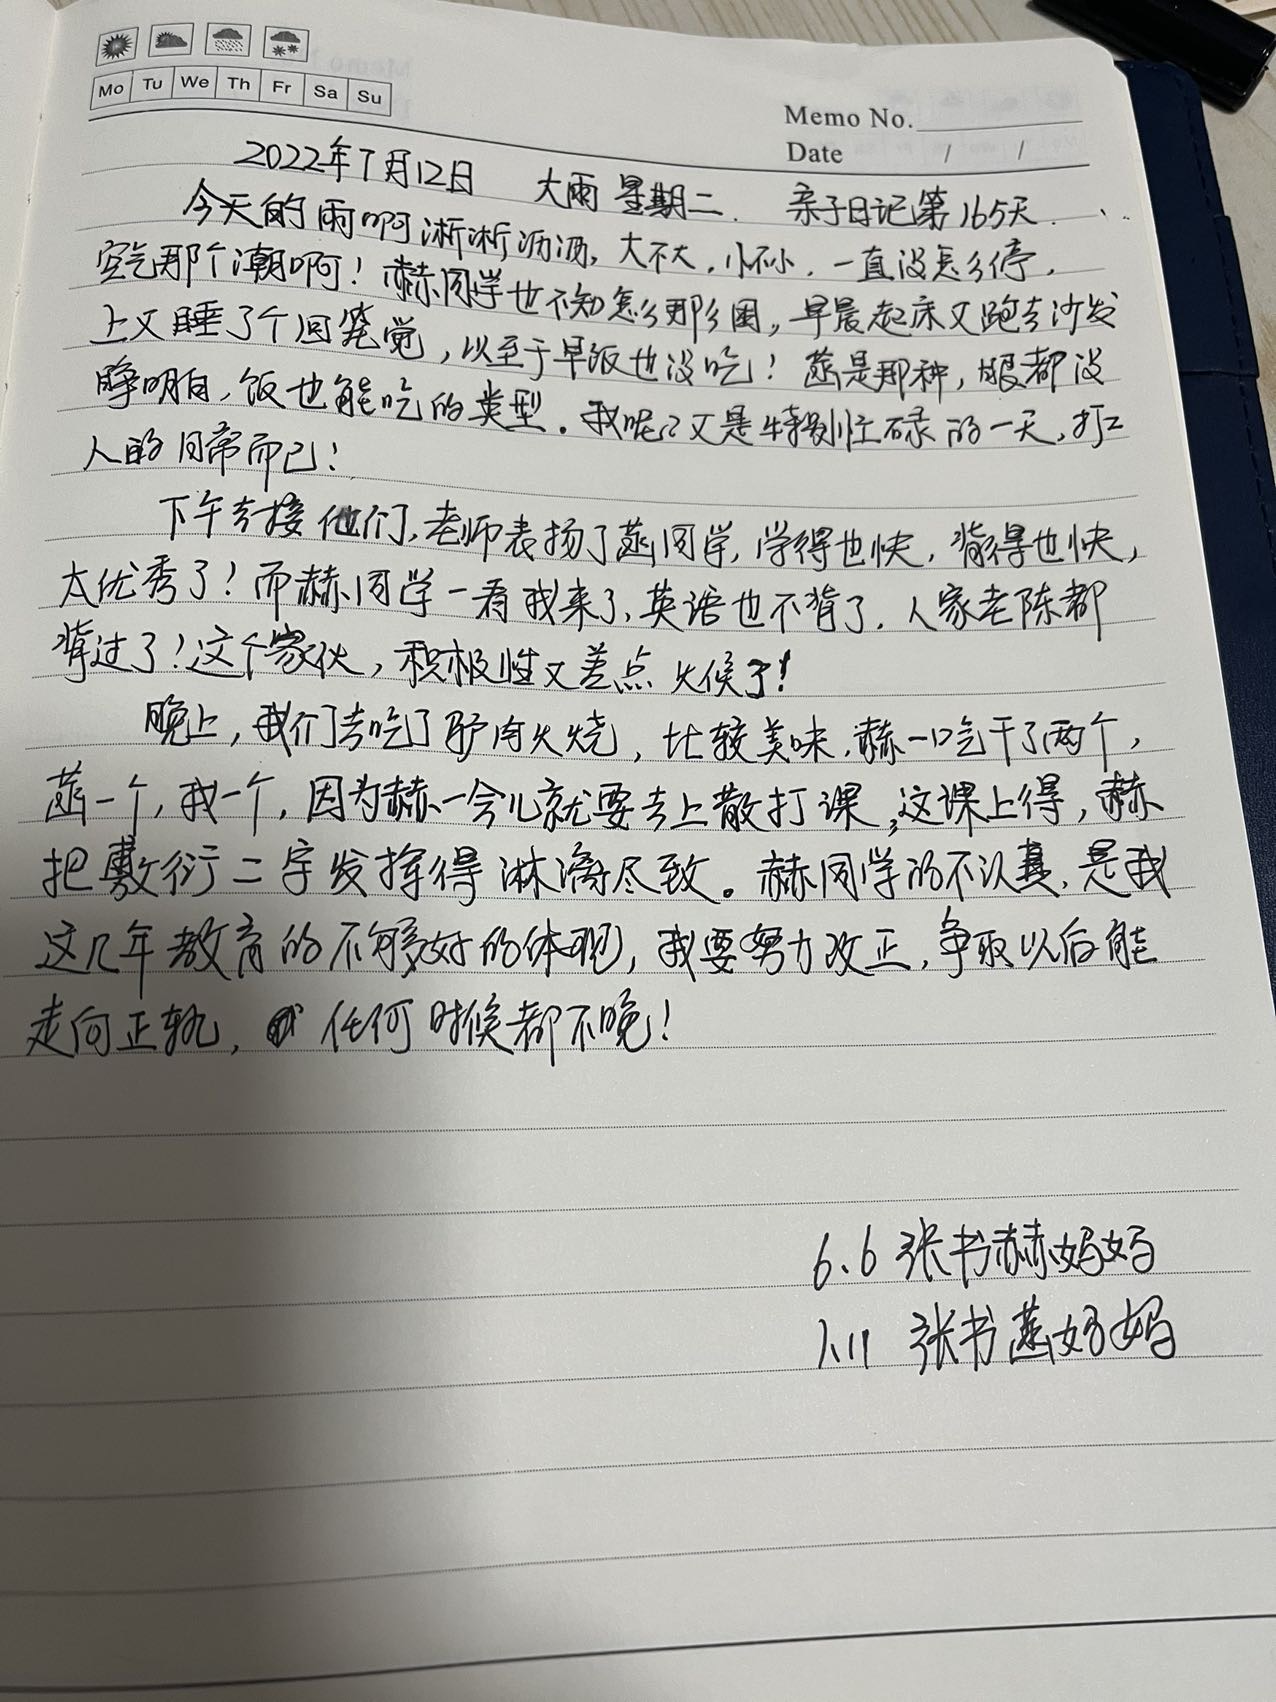 Mo Tu We Th Fr Sa Su
Memo No.
Date / /
2022年7月12日 大雨 星期二. 亲子日记第165天.
今天的雨啊淅淅沥沥,大不大,小不小,一直没怎么停,
空气那个潮啊!赫同学也不知怎么那么困,早晨起床又跑去沙发
上又睡了个回笼觉,以至于早饭也没吃!菡是那种,眼都没
睁明白,饭也能吃的类型。我呢?又是特别忙碌的一天,打工
人的日常而已!
下午去接他们,老师表扬了菡同学,学得也快,背得也快,
太优秀了!而赫同学一看我来了,英语也不背了,人家老陈都
背过了!这个家伙,积极性又差点火候了!
晚上,我们去吃了驴肉火烧,比较美味,赫一口吃干了两个,
菡一个,我一个,因为赫一会儿就要去上散打课,这课上得,赫
把敷衍二字发挥得淋漓尽致。赫同学的不认真,是我
这几年教育的不够好的体现,我要努力改正,争取以后能
走向正轨,任何时候都不晚!
6.6 张书赫妈妈
1.11 张书菡妈妈